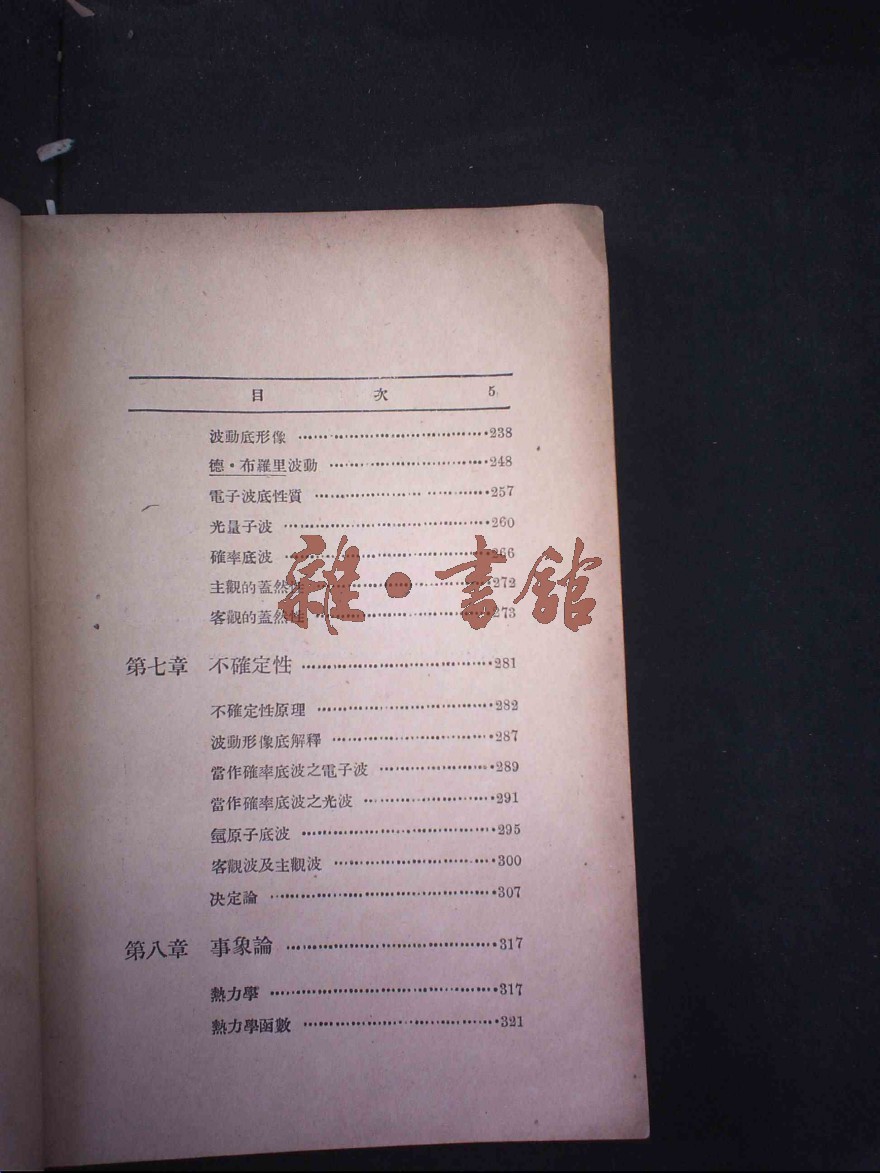 目 次 5
波動底形像 ……………………………238
德·布羅里波動 ……………………………248
電子波底性質 ……………………………257
光量子波 ……………………………260
確率底波 ……………………………266
主觀的蓋然性 ……………………………272
客觀的蓋然性 ……………………………273
雜·書館
第七章 不確定性 ……………………………281
不確定性原理 ……………………………282
波動形像底解釋 ……………………………287
當作確率底波之電子波 ……………………………289
當作確率底波之光波 ……………………………291
氫原子底波 ……………………………295
客觀波及主觀波 ……………………………300
决定論 ……………………………307
第八章 事象論 ……………………………317
熱力學 ……………………………317
熱力學函數 ……………………………321